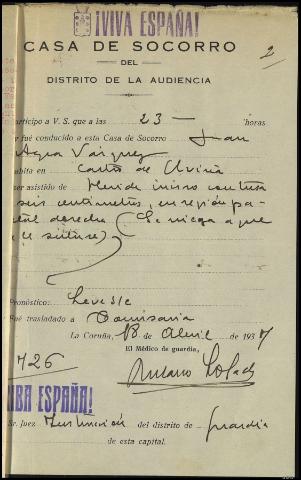 ¡VIVA ESPAÑA!
2
CASA DE SOCORRO
DEL
DISTRITO DE LA AUDIENCIA
articipo a V. S. que a las 23 — horas
y fué conducido a esta Casa de Socorro Juan
Vázquez
abita en
ser asistido de Herida inciso contusa
seis centimetros, en región pa-
etal derecha (Se niega a que
se le suture)
ronóstico: Leve S.C.
ué trasladado a Comisaria
La Coruña, 18 de Abril de 1937
El Médico de guardia,
726
RIBA ESPAÑA!
Sr. Juez Instrucción del distrito de guardia
de esta capital.